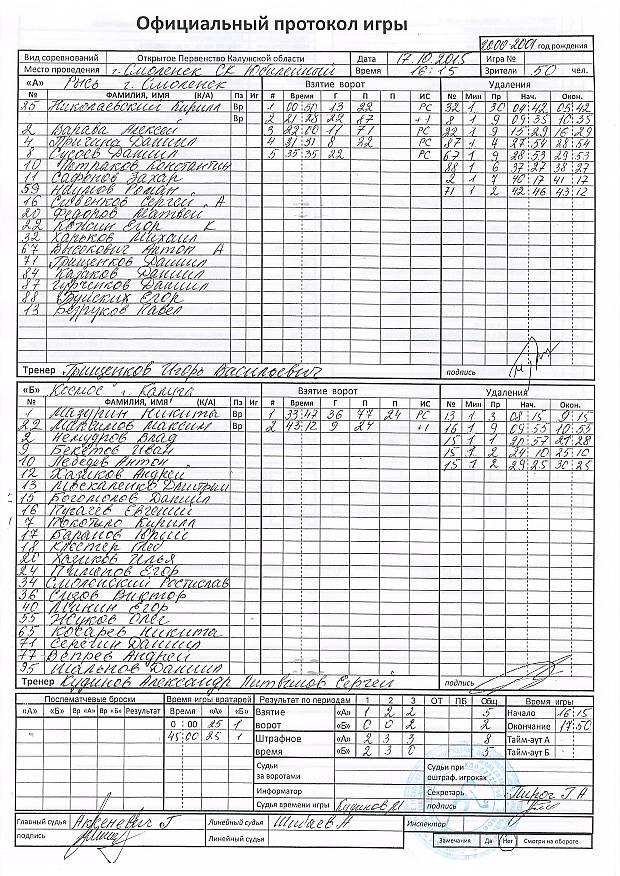 Официальный протокол игры
2000-2001 год рождения
Вид соревнований Открытое Первенство Калужской области Дата 17.10.2015 Игра №
Место проведения г. Смоленск СК Юбилейный Время 16:15 Зрители 50 чел.
«А» Рысь г. Смоленск Взятие ворот Удаления
№ ФАМИЛИЯ, ИМЯ (К/А) Пз Иг # Время Г П П ИС № Мин Пр Нач. Окон.
25 Николаевский Кирилл Вр 1 00:50 13 22 РС 32 1 30 04:42 05:42
Вр 2 21:28 22 87 +1 8 1 9 09:35 10:35
2 Варава Алексей 3 22:00 11 71 РС 22 1 9 15:29 16:29
4 Даниил 4 31:31 8 22 РС 87 1 4 27:54 28:54
8 Сусоев Даниил 5 35:35 22 РС 67 1 9 28:53 29:53
10 Константин 88 1 6 37:27 38:27
11 Сафонов Захар 2 1 7 40:17 41:17
59 Наумов Роман 71 1 2 42:46 43:12
16 Сергей А
20 Федоров Матвей
22 Копын Егор К
32 Ханьков Михаил
67 Высокович Антон А
71 Грищенков Даниил
84 Казаков Даниил
87 Даниил
88 Егор
13 Безруков Павел
Тренер Грищенков Игорь Васильевич подпись
«Б» Космос г. Калуга Взятие ворот Удаления
№ ФАМИЛИЯ, ИМЯ (К/А) Пз Иг # Время Г П П ИС № Мин Пр Нач. Окон.
1 Мазурин Никита Вр 1 33:47 36 77 24 РС 13 1 3 08:15 9:15
22 Максимов Максим Вр 2 43:12 9 24 +1 16 1 9 09:53 10:53
2 Немудров Влад 15 1 1 20:57 21:28
9 Бекетов Иван 15 1 2 24:10 25:10
10 Лебедев Антон 15 1 2 29:25 30:25
12 Хазиков Андрей
13 Москаленко Дмитрий
15 Богомолов Даниил
16 Пугачев Евгений
7 Кирилл
17 Баранов Юрий
18 Глеб
20 Хазиков Илья
24 Егор
34 Смоленский Ростислав
36 Сызов Виктор
40 Егор
55 Жуков Олег
65 Косарев Никита
71 Серегин Даниил
77 Вепрев Андрей
95 Даниил
Тренер Кудинов Александр Литвинов Сергей подпись
Послематчевые броски Время игры вратарей Результат по периодам 1 2 3 ОТ ПБ Общ Время игры
«А» «Б» Вр «А» Вр «Б» Результат Время «А» «Б» Взятие «А» 1 2 2 5 Начало 16:15
0:00 25 1 ворот «Б» 0 0 2 2 Окончание 17:50
45:00 25 1 Штрафное «А» 2 3 3 8 Тайм-аут А
время «Б» 2 3 0 5 Тайм-аут Б
Судьи за воротами Судьи при оштраф. игроках
Информатор Секретарь
Судья времени игры подпись
Главный судья Линейный судья Инспектор
подпись Линейный судья Замечания Да Нет Смотри на обороте